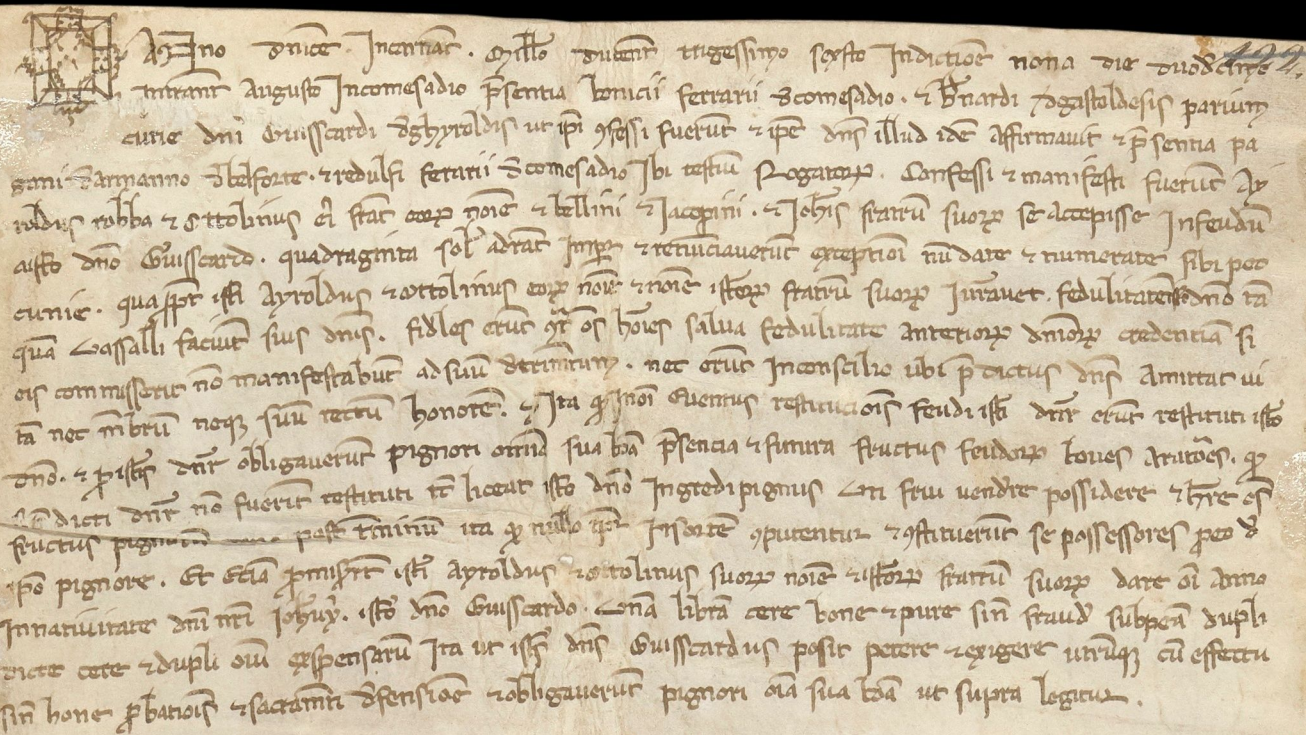 Anno dnice Incarnat. Millo ducent trigessimo sexto Indictioe nona die duodecimo
Intrant Augusto Incomesadio psentia bonicii ferrarii d comesadio. & bnardi d gastoldesis parium
curie dni Guisscardi d ghyroldis ut ipi gfessi fuerut & ipe dns illud ide affirmavit & psentia pa
gani d armanno d belforte. & redulfi ferarii d comesadio Ibi testiu Rogator. Confessi & manifesti fuerut Ay
roldus robba & Ottolinus ei frat eor noie & bellini & Iacopini. & Iohis fratru suor se accepisse Infeudu
a isto dno Guisscardo. quadraginta sol ad rat Imper & renuciaverut exceptioi nu date & numerate sibi pec
cunie. qua ppt isti Ayroldus & Ottolinus eor noie & noie istor fratru suor Iuravet fedulitate isto dno ta
qua vassalli faciut suis dnis. fidles erut gt os hoies salva fedulitate anterior dnior credentia si
eis commisserit no manifestabut ad suu detrimtum. nec erut Inconscilio ubi pdictus dns amittat vi
ta nec mbru neque suu rectu honore. & Ita q omi Eventus restitucois feudi isti dnr erut restituti isto
dno. & p istis dnr obligaverut pignori omia sua boa psencia & futura fructus feudor boves aratores. q
si dicti dnr no fuerit restituti tc liceat isto dno Ingredi pignus Uti frui vendre possidere & hre os
fructus post tminu ita q nullo tpr Insorte gputentur & gstituerut se possessores p eo d
ipo pignore. Et Etia pmisert isti Ayroldus & Ottolinus suor noie & istor fratru suor dare oi anno
Innativitate dni nri isto dno Guisscardo. Una libra cere bone & pure sin fraud subpea dupli
dicte cere & dupli oiu expensaru Ita ut ists dns Guisscardus posit petere & exigere utruque cu effectu
sin hone pbatiois & sacramti dfensioe & obligaverut pignori oia sua boa ut supra legitur.